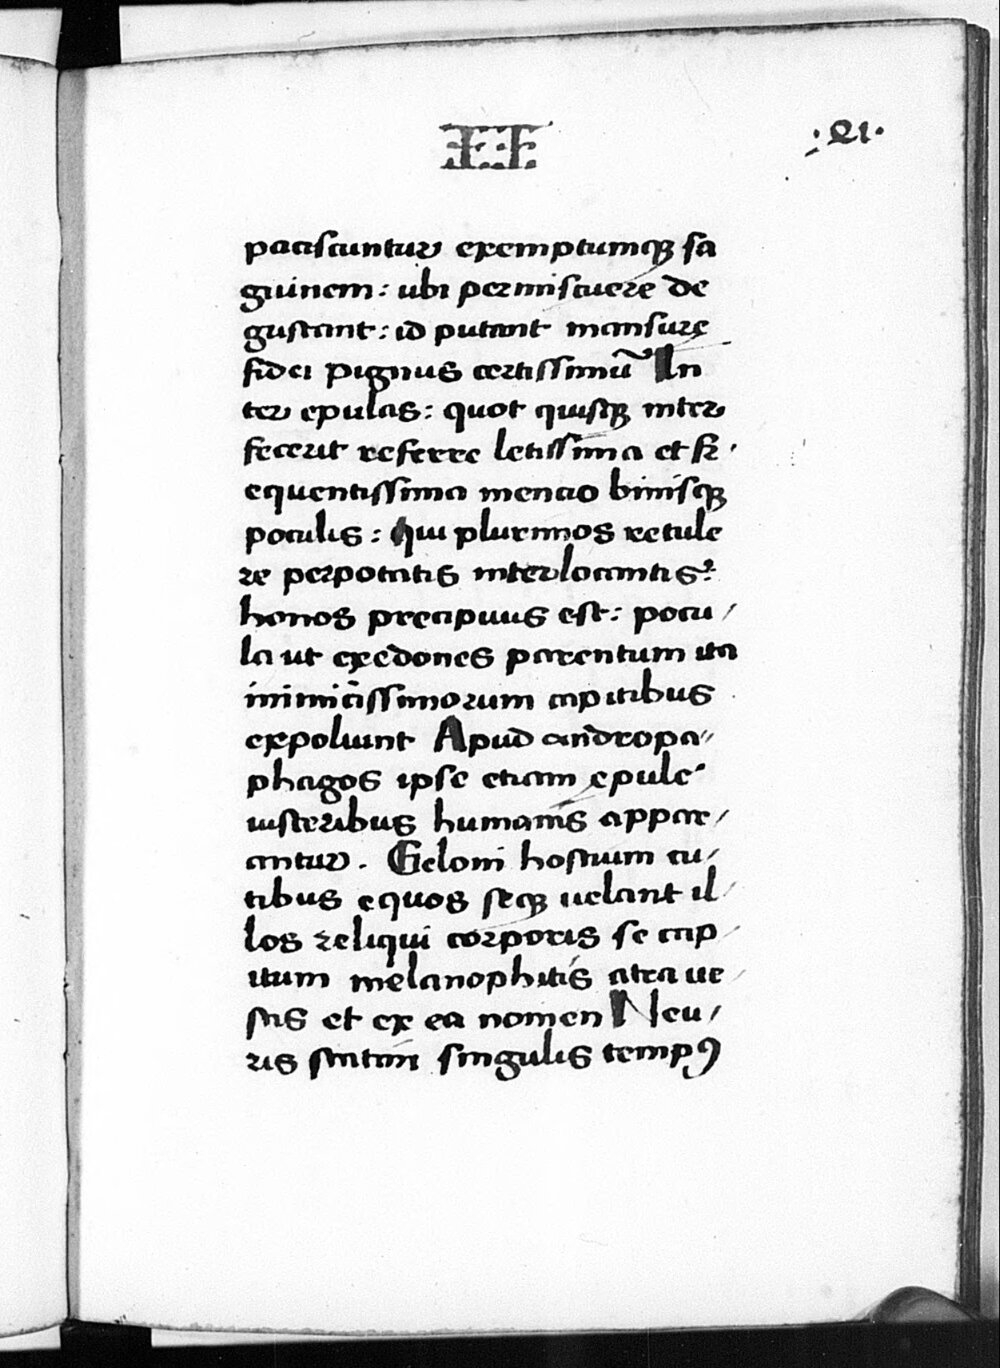 II
:21.
paciscuntur exemptumqꝫ sa
guinem: ubi permiscuere de
gustant: id putant mansurę
fidei pignus certissimū In
ter epulas: quot quisqꝫ inter
fecerit referre letissima et fr
equentissima mencio binisqꝫ
poculis: qui plurimos retule
re perpotatis interlocantis:
honos precipuus est: pocu/
la ut exedones parentum ita
inimicissimorum capitibus
expoliunt Apud andropa/
phagos ipse etiam epule
uisceribus humanis appar/
antur. Geloni hostium cu/
tibus equos seqꝫ uelant il/
los reliqui corporis se cap/
itum melanophitis atra ue/
stis et ex ea nomen Neu/
ris statim singulis tempꝯ